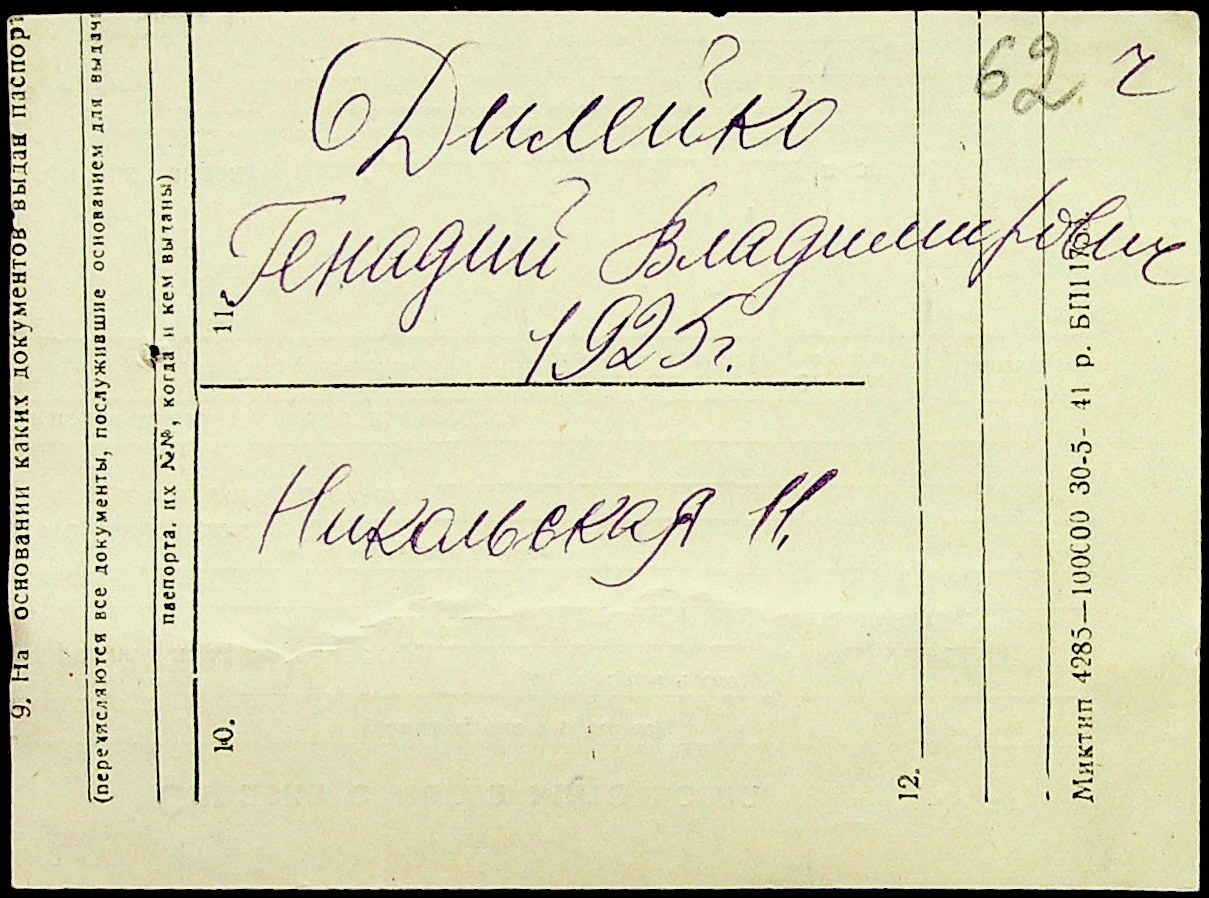 62 ч
Дилейко
Генадий Владимирович
1925 г.
Никольская 11.
9. На основании каких документов выдан паспорт
(перечисляются все документы, послужившие основанием для выдачи
паспорта, их №№, когда и кем выданы)
10.
11.
12.
Миктип 4285—100000 30-5- 41 р.